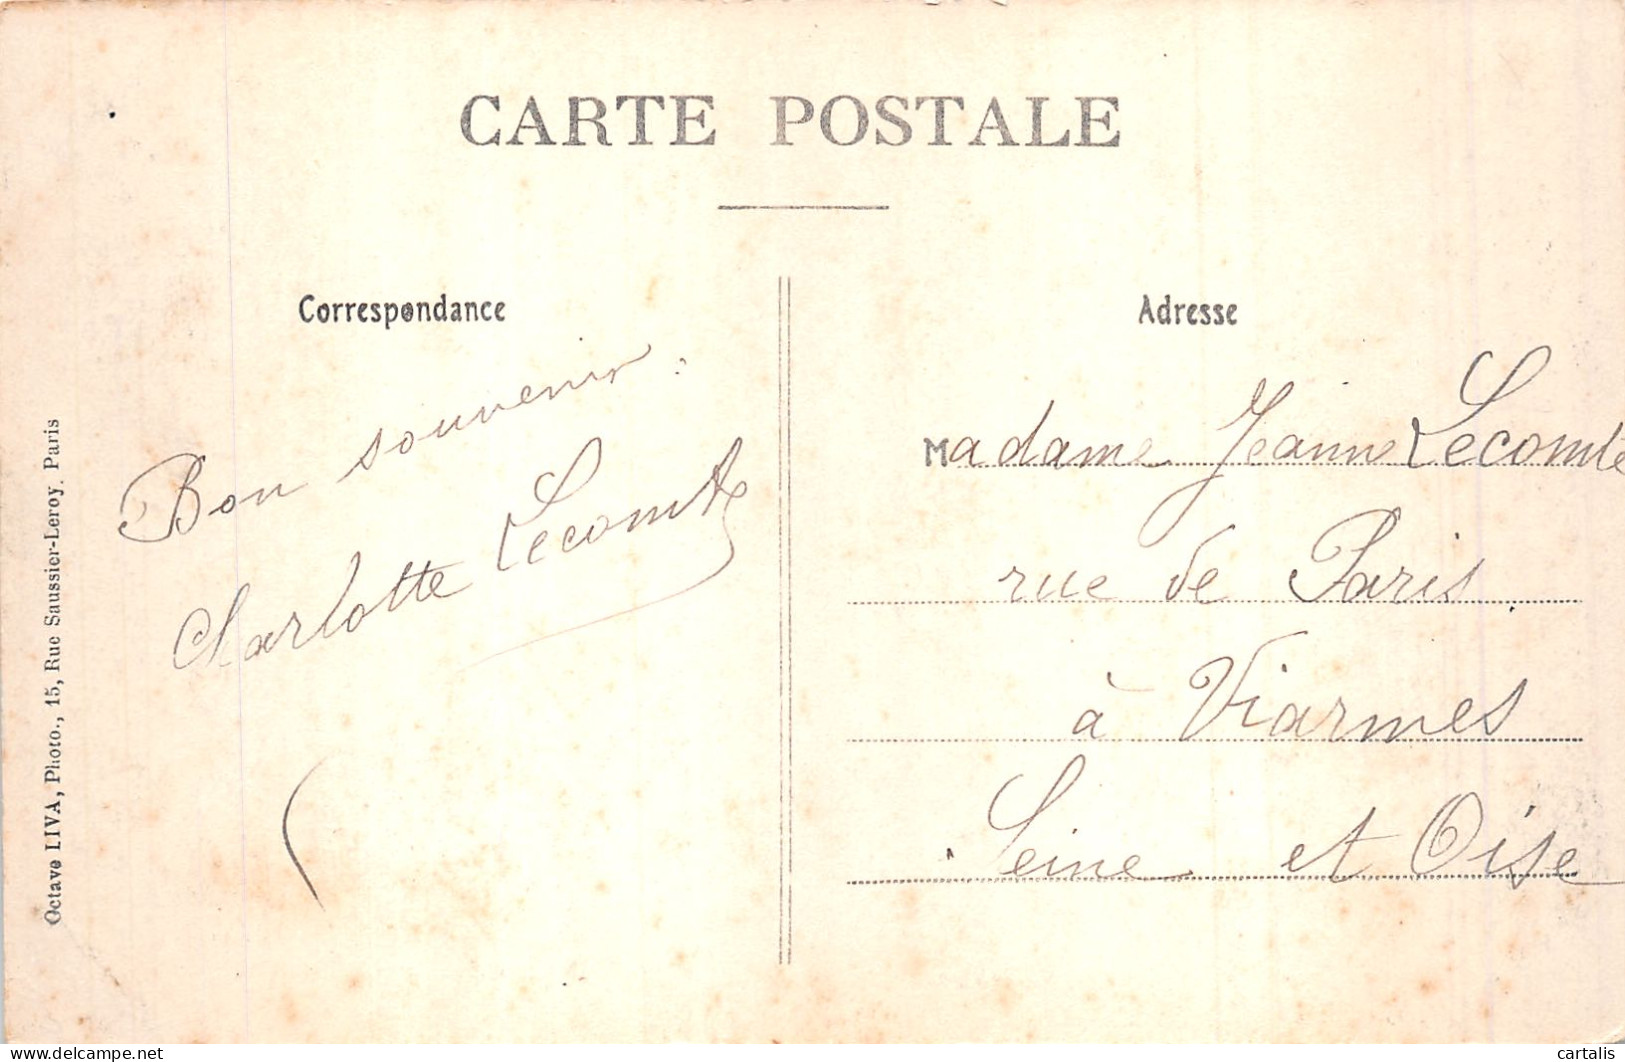 CARTE POSTALE
Correspondance
Bon souvenir.
Charlotte Lecomte
Adresse
Madame Jeanne Lecomte
rue de Paris
à Viarmes
Seine et Oise
Octave LIVA, Photo., 15, Rue Saussier-Leroy, Paris
delcampe.net
cartalis